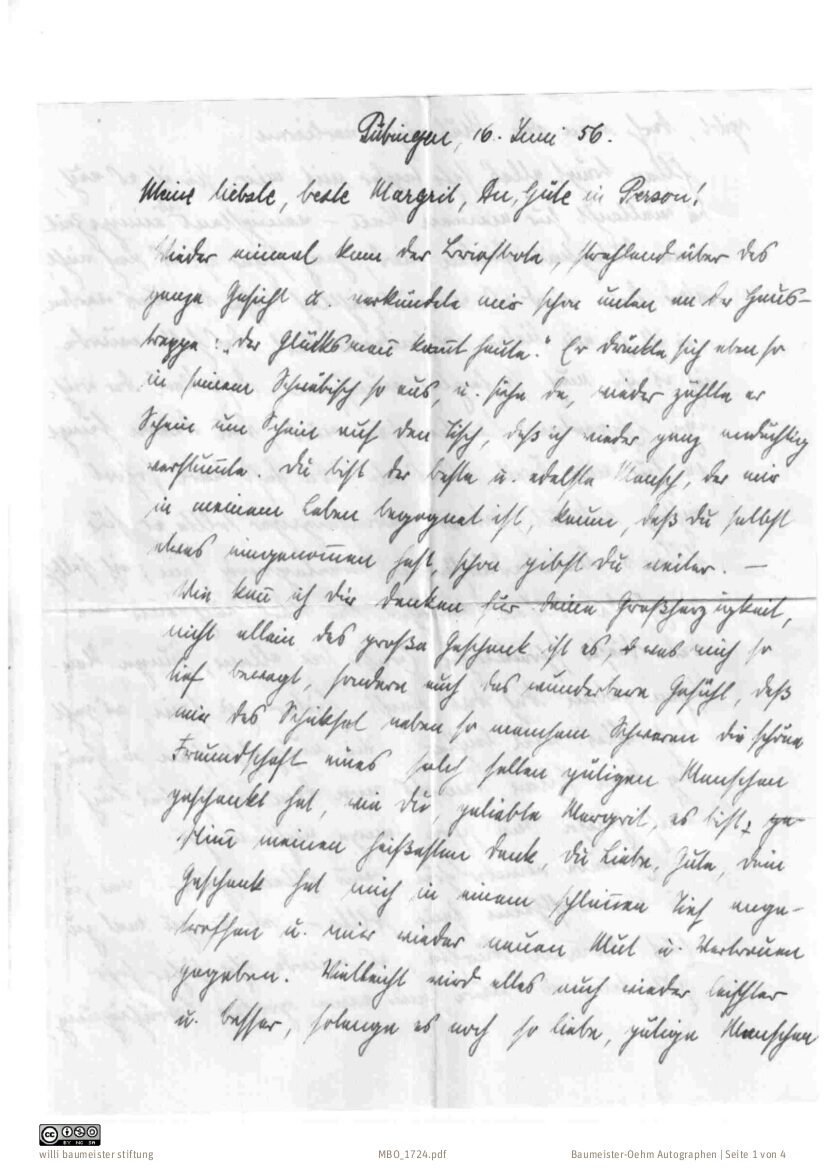 Tübingen, 16. Juni 56.
Meine liebste, beste Margrit, Du, Güte in Person!
Wieder einmal kam der Briefbote, strahlend über das
ganze Gesicht u. verkündete mir schon unten an der Haus-
treppe: „der Glücksmañ kom̃t heute." Er drückte sich eben so
in seinem Schwäbisch so aus, u. siehe da, wieder zählte er
Schein um Schein auf den Tisch, daß ich wieder ganz andächtig
verstum̃te. Du bist der beste u. edelste Mensch, der mir
in meinem Leben begegnet ist, kaum, daß du selbst
etwas eingenom̃en hast, schon gibst du weiter. —
Wie kañ ich dir danken für deine Großherzigkeit,
nicht allein das große Geschenk ist es, was mich so
tief bewegt, sondern auch das wunderbare Gefühl, daß
mir das Schicksal neben so manchem Schweren die schöne
Freundschaft eines solch selten gütigen Menschen
geschenkt hat, wie du, geliebte Margrit, es bist.
Nim̃ meinen heißesten Dank, du Liebe, Gute, dein
Geschenk hat mich in einem schlim̃en Tief ange-
troffen u. mir wieder neuen Mut u. Vertrauen
gegeben. Vielleicht wird alles auch wieder leichter
u. besser, solange es noch so liebe, gütige Menschen
CC BY NC SA
willi baumeister stiftung
MBO_1724.pdf
Baumeister-Oehm Autographen | Seite 1 von 4